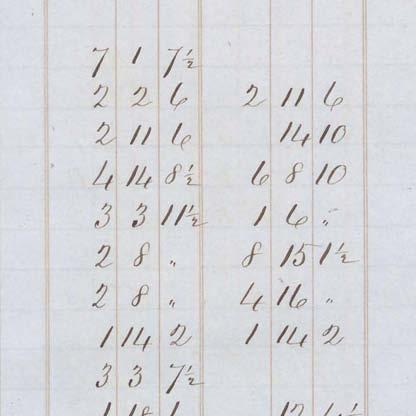 7 1 7½
2 2 6 2 11 6
2 11 6 14 10
4 14 8½ 6 8 10
3 3 11½ 1 6 "
2 8 " 8 15 1½
2 8 " 4 16 "
1 14 2 1 14 2
3 3 7½